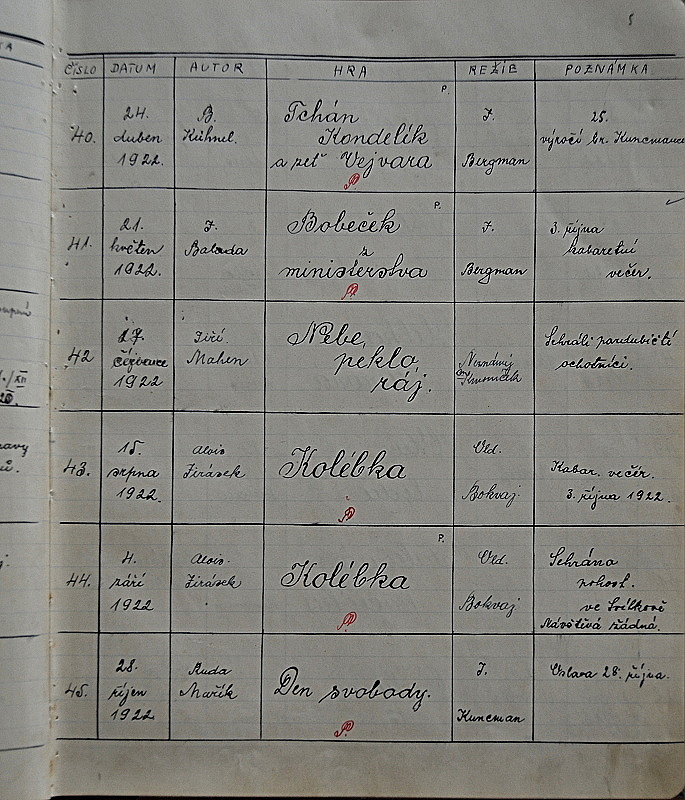 5
ČÍSLO DATUM AUTOR HRA REŽIE POZNÁMKA
P.
40.
24.
duben
1922.
B.
Kühnel.
Tchán
Kondelík
a zeť Vejvara
J.
Bergman
25.
výročí br. Kuncmana
P.
41.
21.
květen
1922.
J.
Balada
Bobeček
z
ministerstva
J.
Bergman
3. října
kabaretní
večer.
42
27.
července
1922
Jiří
Mahen
Nebe,
peklo,
ráj.
Sehráli pardubičtí
ochotníci.
43.
15.
srpna
1922.
Alois
Jirásek
Kolébka
Vld.
Bokvaj
Kabar. večer.
3. října 1922.
P.
44.
4.
září
1922
Alois
Jirásek
Kolébka
Vld.
Bokvaj
Sehrána
pohost.
ve
Návštěva žádná.
45.
28.
říjen
1922.
Ruda
Mařík
Den svobody.
J.
Kuncman
Oslava 28. října.